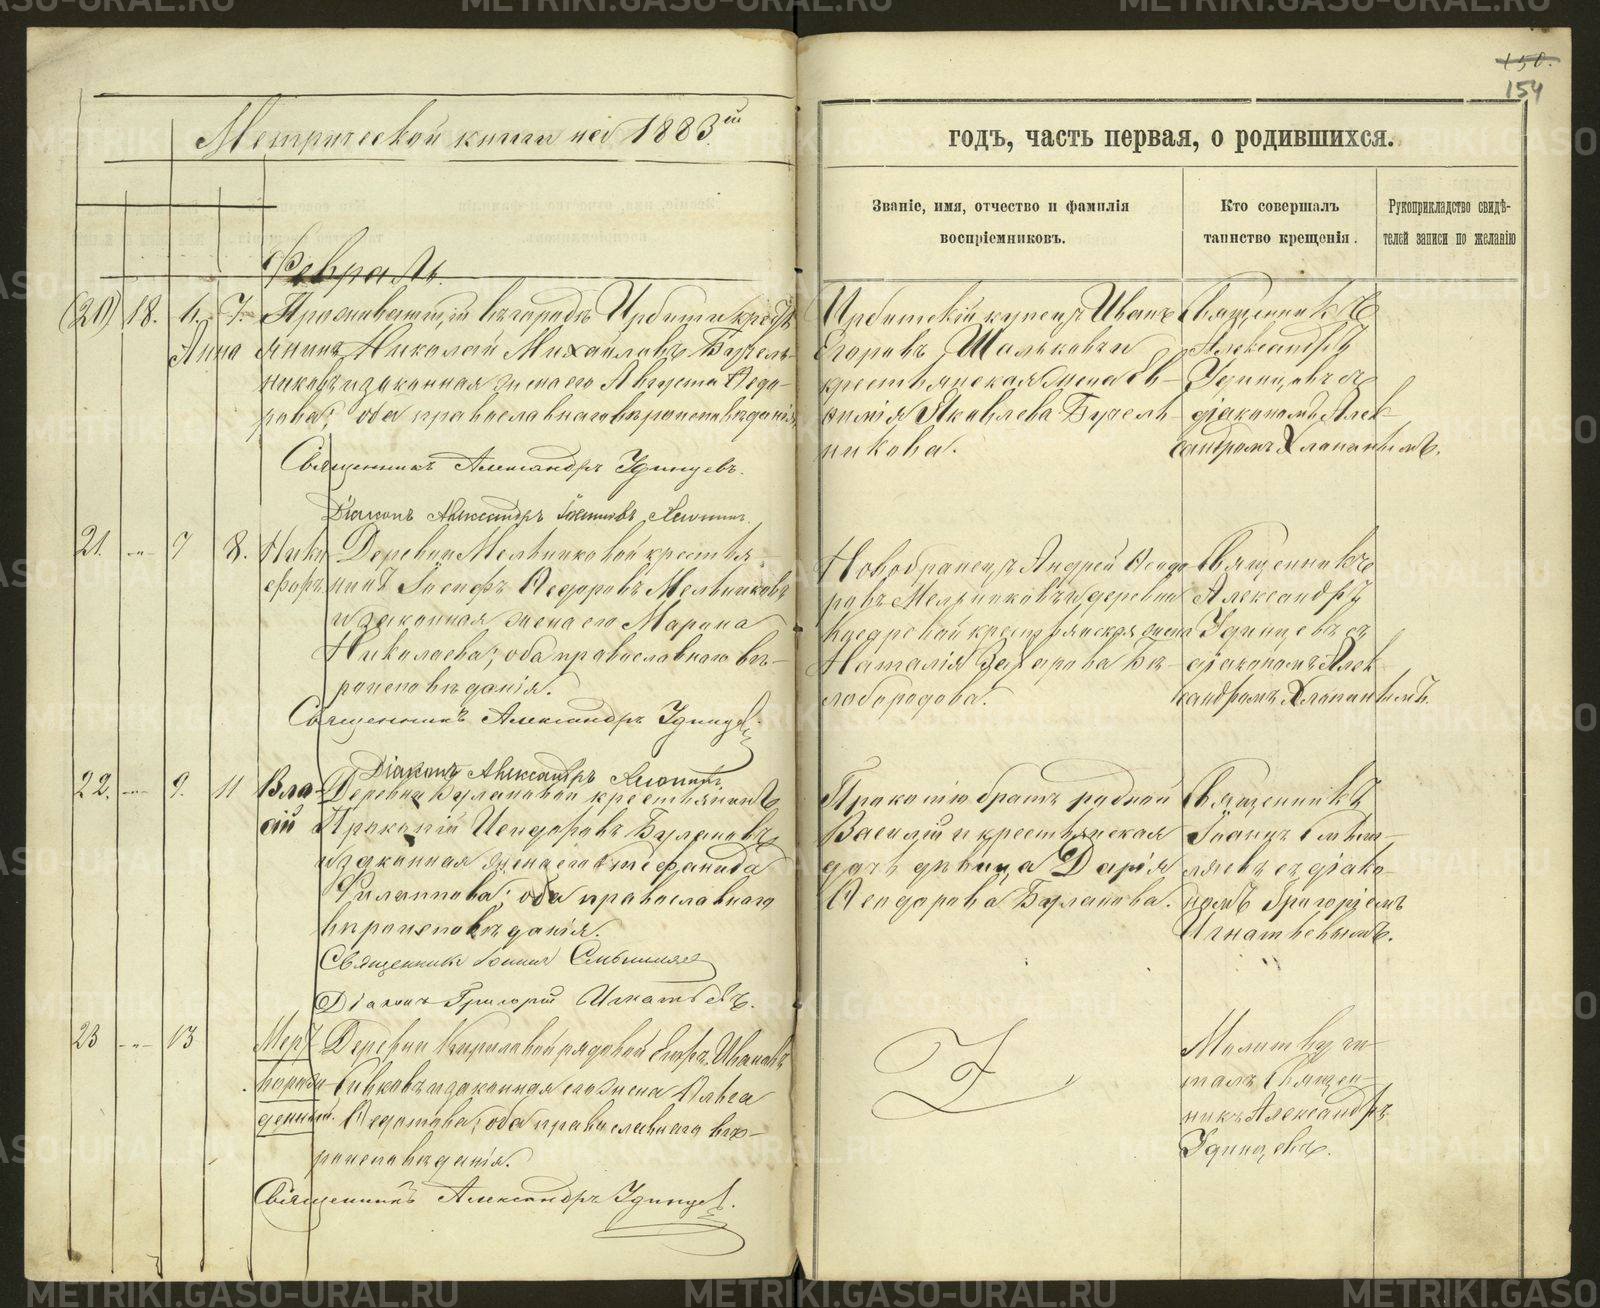 150.
154
Метрической книги на 1883й
годъ, часть первая, о родившихся.
Званіе, имя, отчество и фамилія
воспріемниковъ.
Кто совершалъ
таинство крещенія.
Рукоприкладство свидѣ-
телей записи по желанію
Февраль.
(20) 18. 6. 7.
Анна
Проживающій въ городѣ Ирбити кресть
янинъ Николай Михайловъ Бутель-
никовъ и законная жена его Августа Ѳедо-
рова; оба православнаго вѣроисповѣданія
Священникъ Александръ Удинцевъ.
Діаконъ Александръ
Ирбитскій купецъ Иванъ
Егоровъ Шальковъ и
крестьянская жена Ев-
фимія Яковлева Бутель-
никова.
Священникъ
Александръ
Удинцевъ съ
діакономъ Алек-
сандромъ Хлопаннымъ.
21. -"- 7 8. Ники
форъ
Деревни Мельниковой крестья-
нинъ Іосифъ Ѳедоровъ Мельниковъ
и законная жена его Марѳа
Николаева; оба православнаго вѣ-
роисповѣданія.
Священникъ Александръ Удинцевъ.
Діаконъ Александръ
Новобранецъ Андрей Ѳеодо
ровъ Мельниковъ и деревни
крестьянская жена
Наталія Захарова Бѣ-
лобородова.
Священникъ
Александръ
Удинцевъ съ
діакономъ Алек-
сандромъ
22. -"- 9. 11 Вла-
сій
Деревни Булановой крестьянинъ
Прокопій Ѳеодоровъ Булановъ
и законная жена его Стефанида
Филиппова; оба православнаго
вѣроисповѣданія.
Священникъ Іоаннъ Смышляевъ
Діаконъ Григорій Игнатьевъ.
Прокопію братъ родной
Василій и крестьянская
дочь дѣвица Дарія
Ѳеодорова Буланова.
Священникъ
Іоаннъ Смыш-
ляевъ съ діако-
номъ Григоріемъ
Игнатьевымъ.
23 -"- 13
Мер
ворож-
денный.
Деревни Кириловой рядовой Егоръ Ивановъ
и законная его жена Ольга
Ѳедотова; оба православнаго вѣ-
роисповѣданія.
Священникъ Александръ Удинцевъ.
Молитву чи-
талъ Священ-
никъ Александръ
Удинцевъ.
METRIKI.GASO-URAL.RU